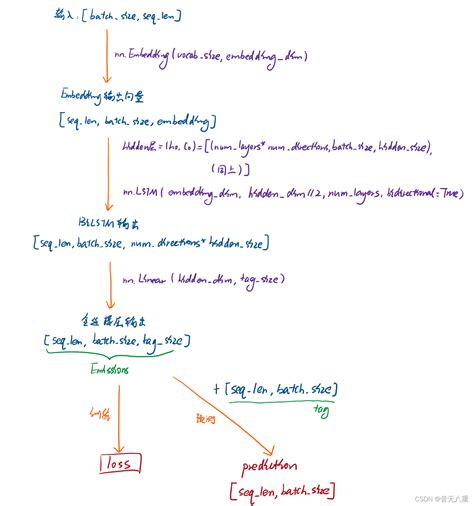 输入:[batch_size, seq_len]
nn.Embedding(vocab_size, embedding_dim)
Embedding输出向量
[seq_len, batch_size, embedding]
hidden层=(h0, c0)=[(num_layers*num_directions, batch_size, hidden_size),
(同上)]
nn.LSTM(embedding_dim, hidden_dim//2, num_layers, bidirectional=True)
BiLSTM输出
[seq_len, batch_size, num_directions*hidden_size]
nn.Linear(hidden_dim, tag_size)
全连接层输出
[seq_len, batch_size, tag_size]
Emissions
+[seq_len, batch_size]
tag
训练
预测
loss
prediction
[seq_len, batch_size]
CSDN @音无八重